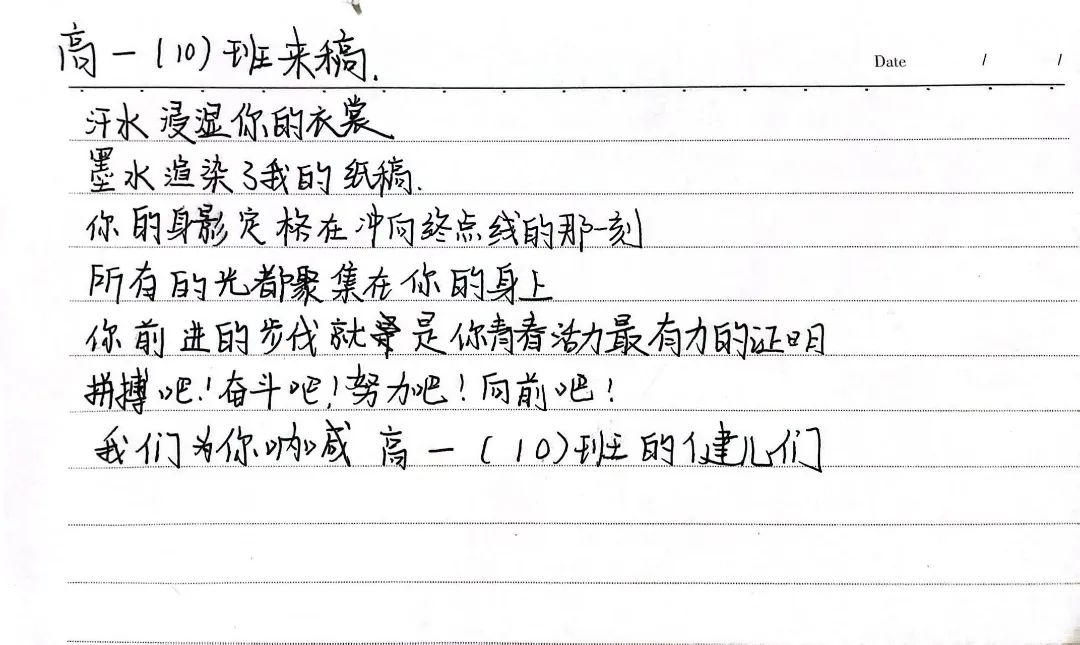 高一(10)班来稿.
Date / /
汗水浸湿你的衣裳
墨水渲染了我的纸稿.
你的身影定格在冲向终点线的那一刻
所有的光都聚集在你的身上
你前进的步伐就是你青春活力最有力的证明
拼搏吧!奋斗吧!努力吧!向前吧!
我们为你呐喊 高一(10)班的健儿们